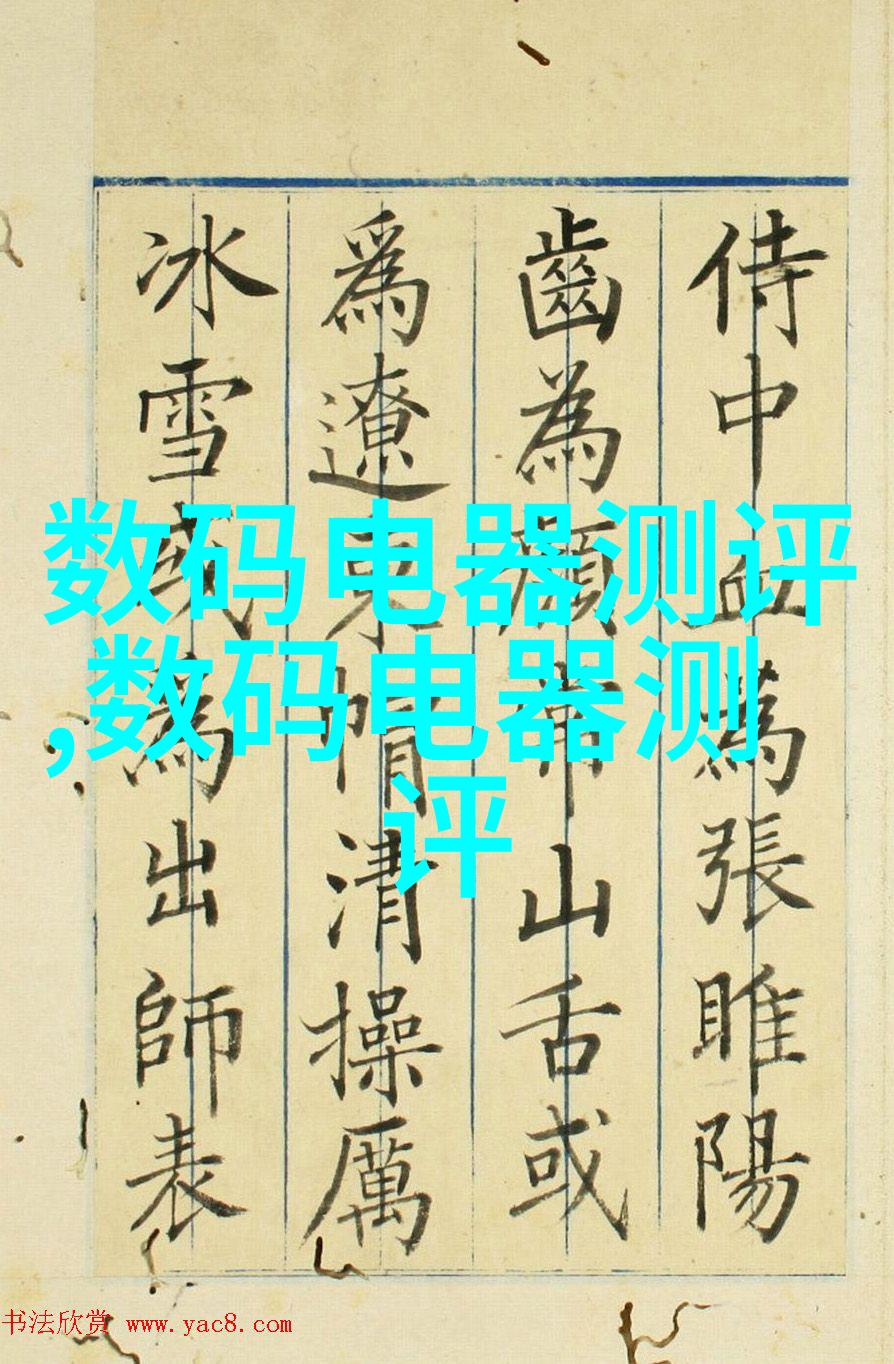 侍中血為張睢陽
齒為顏常山舌或
爲遼東帽清操厲
冰雪或為出師表
数码电器测评
,数码电器测
评
书法欣赏 www.yac8.com